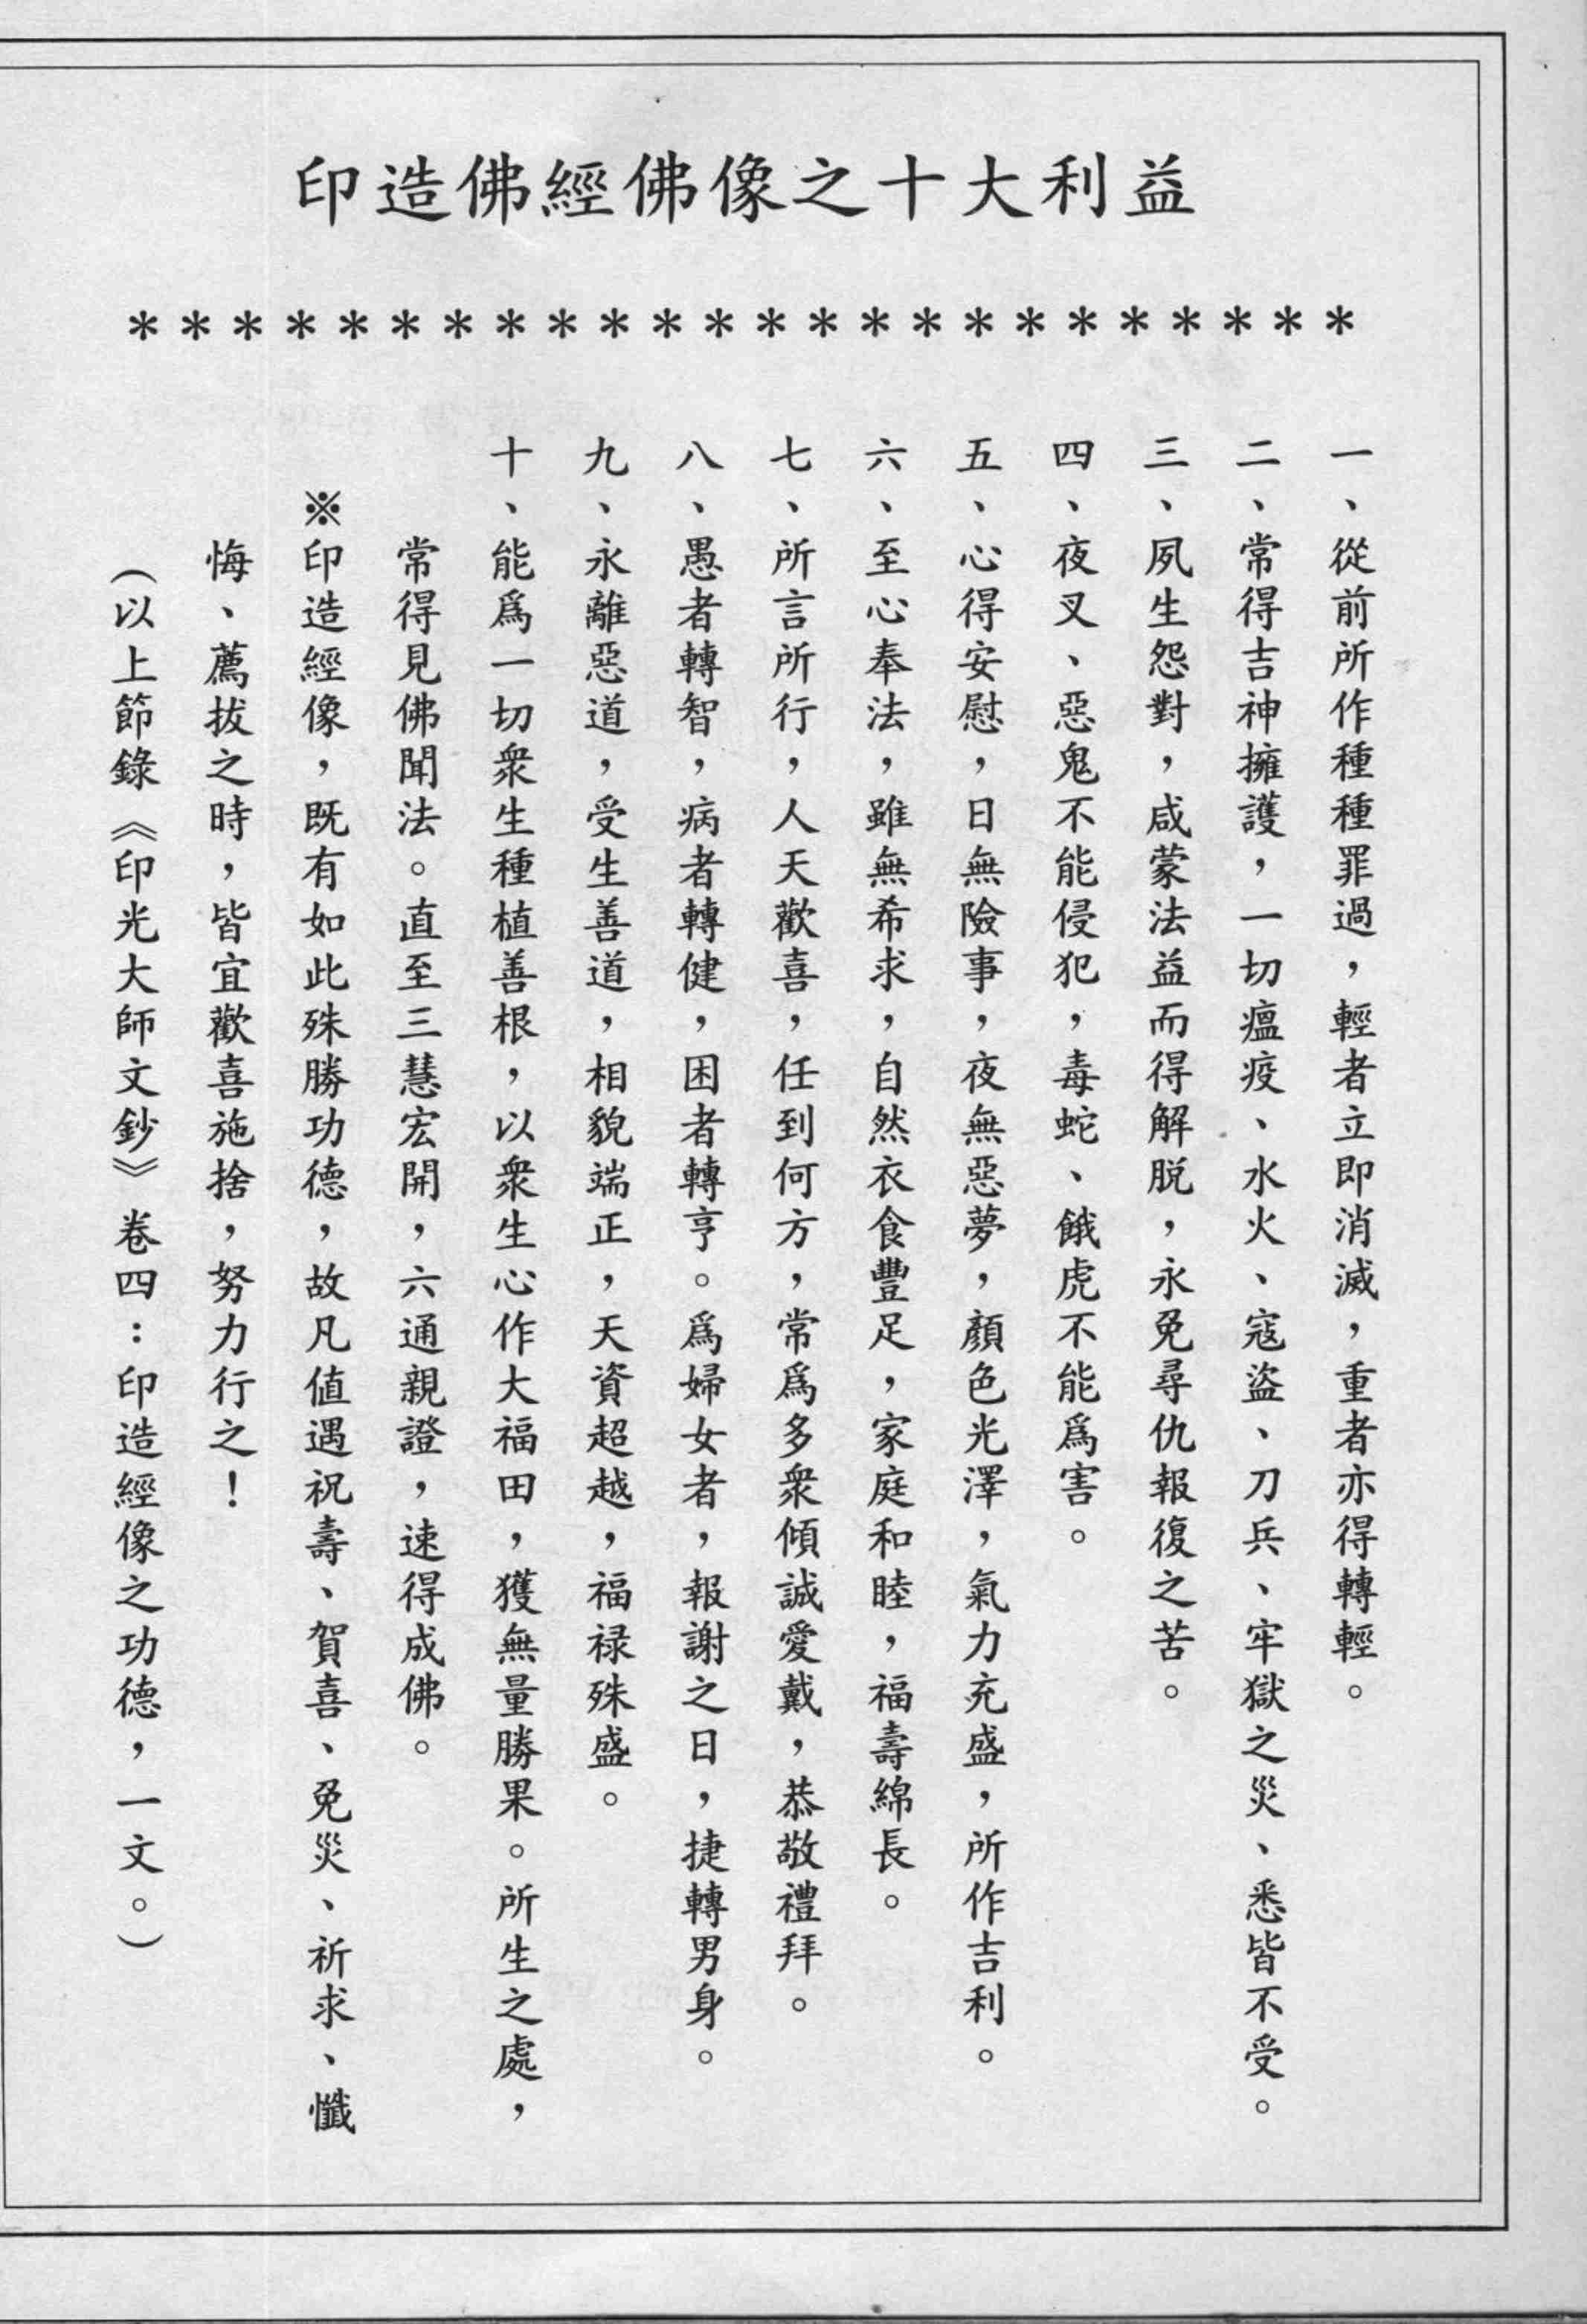 印造佛經佛像之十大利益
＊＊＊＊＊＊＊＊＊＊＊＊＊＊＊＊＊＊＊＊＊＊＊＊
一、從前所作種種罪過，輕者立即消滅，重者亦得轉輕。
二、常得吉神擁護，一切瘟疫、水火、寇盜、刀兵、牢獄之災、悉皆不受。
三、夙生怨對，咸蒙法益而得解脱，永免尋仇報復之苦。
四、夜叉、惡鬼不能侵犯，毒蛇、餓虎不能爲害。
五、心得安慰，日無險事，夜無惡夢，顏色光澤，氣力充盛，所作吉利。
六、至心奉法，雖無希求，自然衣食豐足，家庭和睦，福壽綿長。
七、所言所行，人天歡喜，任到何方，常爲多衆傾誠愛戴，恭敬禮拜。
八、愚者轉智，病者轉健，困者轉亨。爲婦女者，報謝之日，捷轉男身。
九、永離惡道，受生善道，相貌端正，天資超越，福禄殊盛。
十、能爲一切衆生種植善根，以衆生心作大福田，獲無量勝果。所生之處，
常得見佛聞法。直至三慧宏開，六通親證，速得成佛。
※印造經像，既有如此殊勝功德，故凡值遇祝壽、賀喜、免災、祈求、懺
悔、薦拔之時，皆宜歡喜施捨，努力行之！
（以上節錄《印光大師文鈔》卷四：印造經像之功德，一文。）